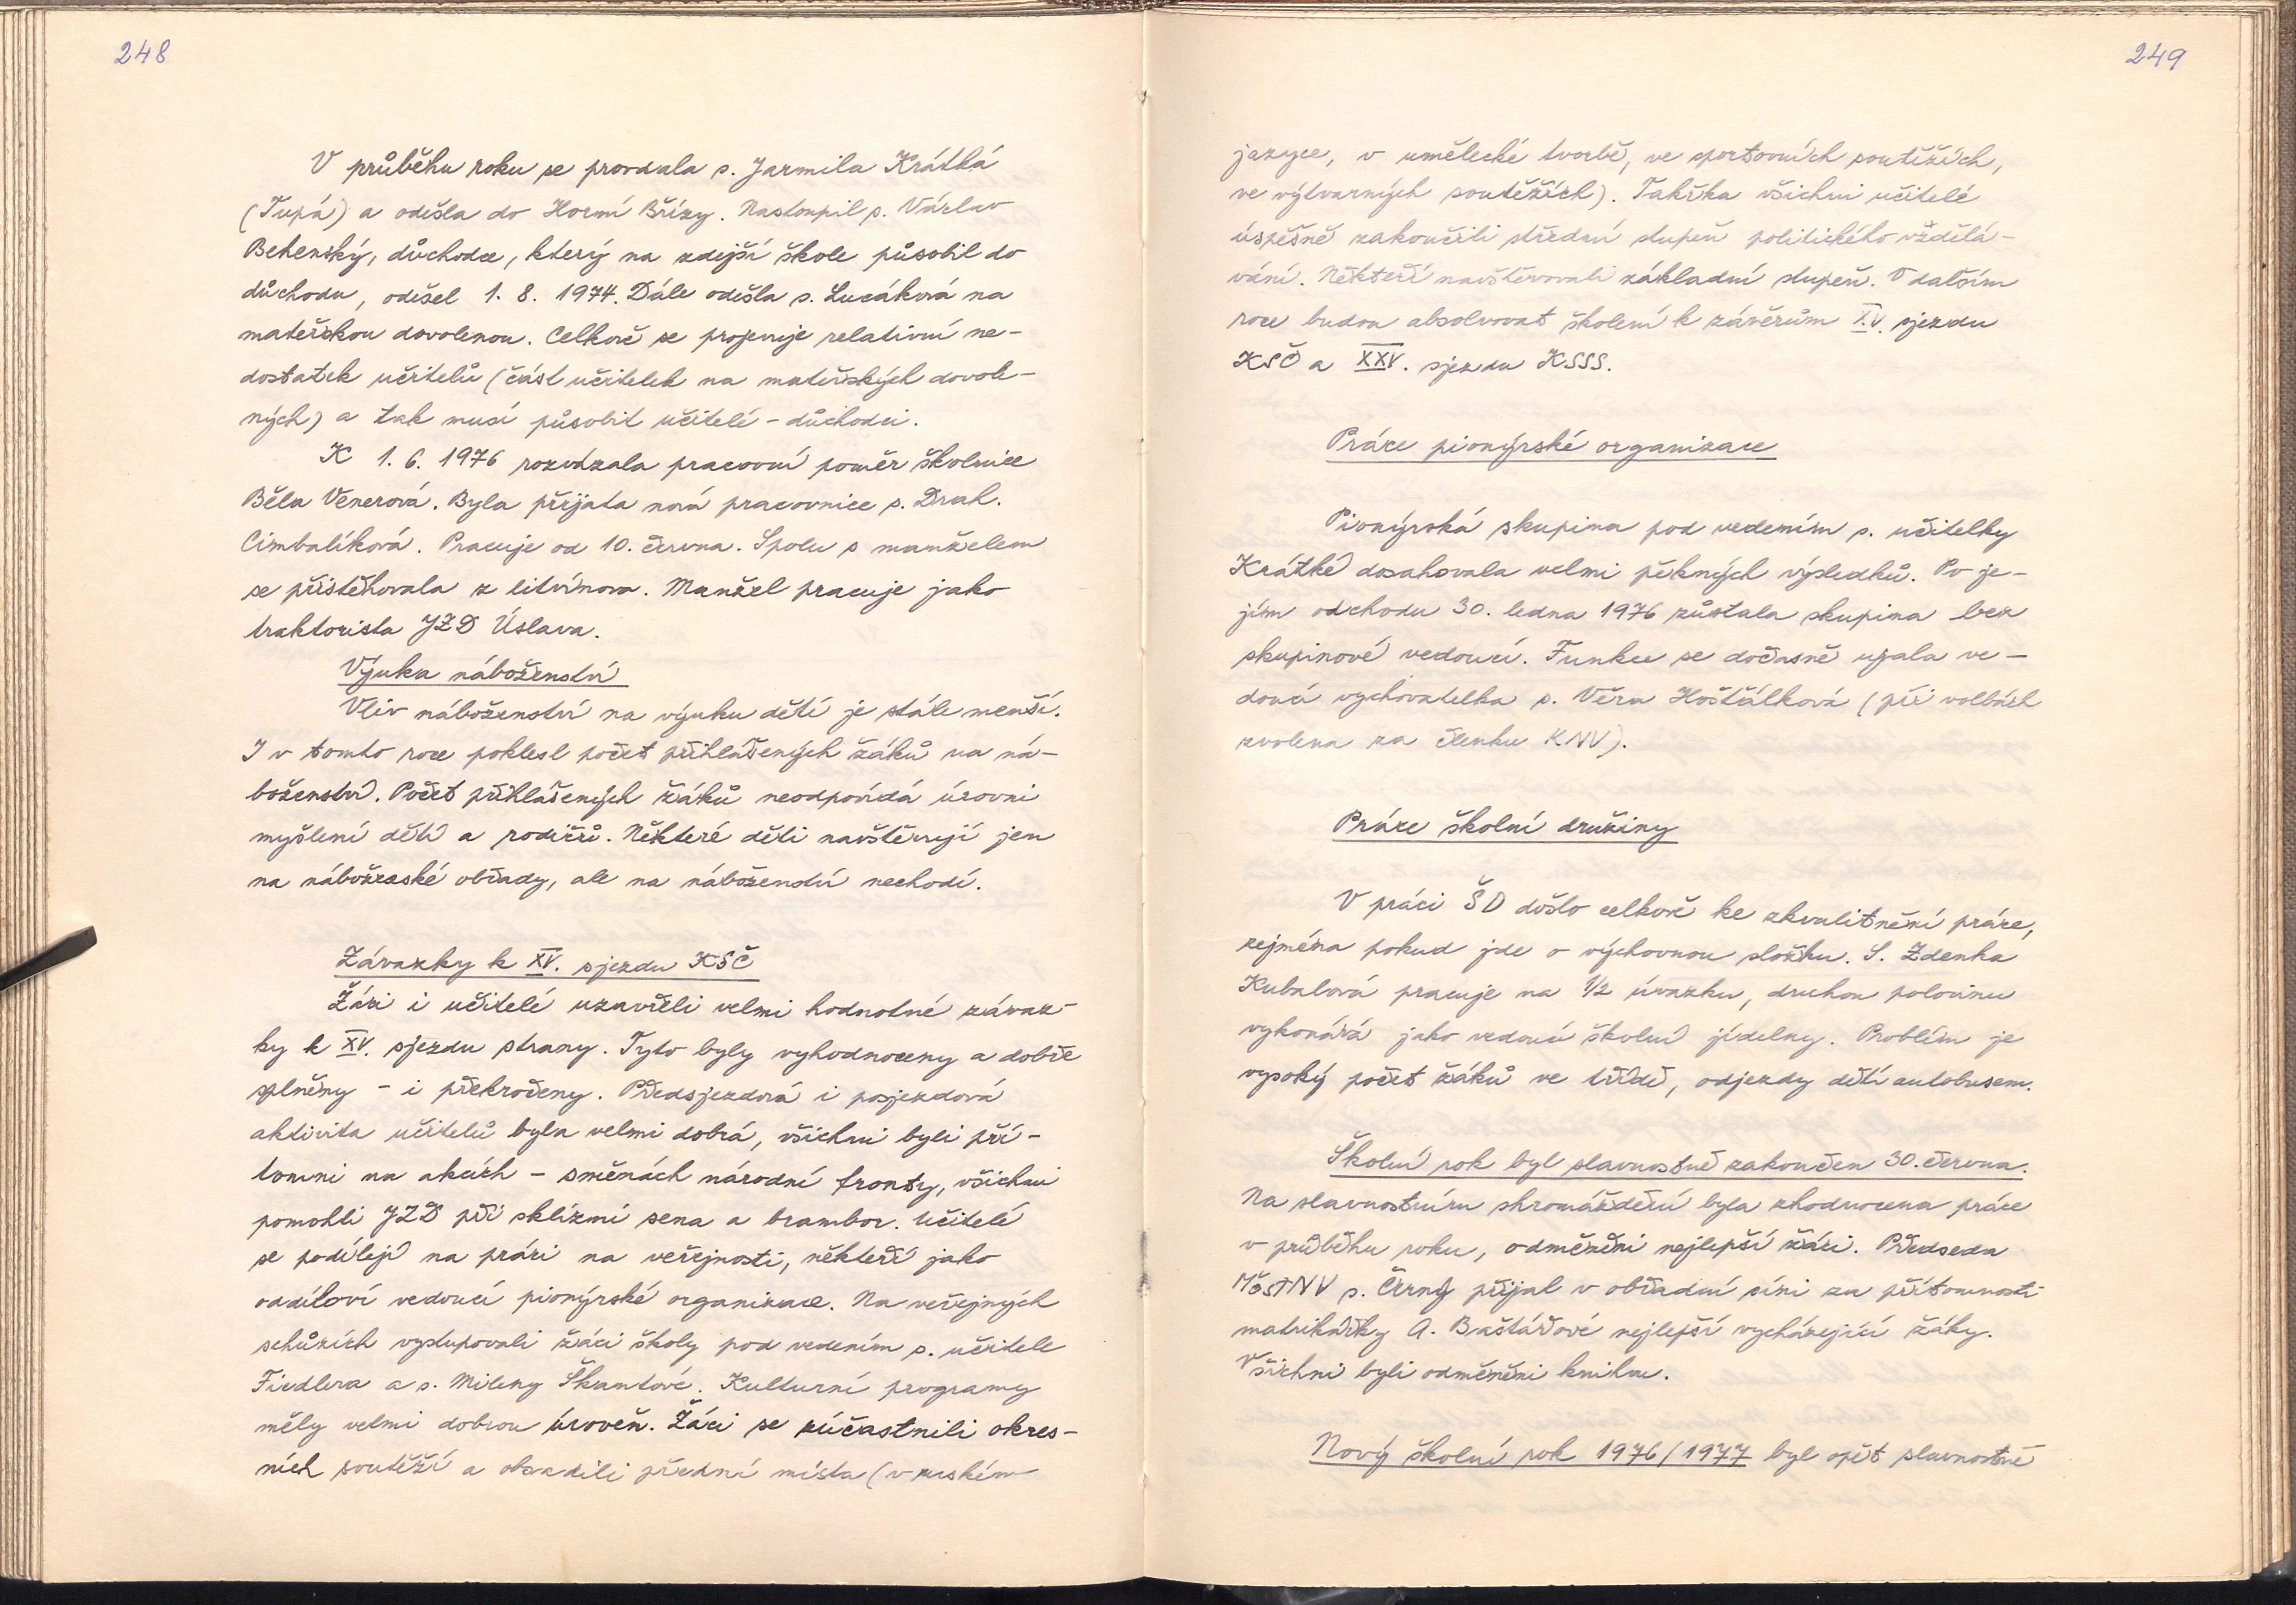 248
V průběhu roku se provdala s. Jarmila Krátká
(Tupá) a odešla do Horní Břízy. Nastoupil s. Václav
Behenský, důchodce, který na zdejší škole působil do
důchodu, odešel 1. 8. 1974. Dále odešla s. Lucáková na
mateřskou dovolenou. Celkově se projevuje relativní ne-
dostatek učitelů (část učitelek na mateřských dovole-
ných) a tak musí působit učitelé - důchodci.
K 1. 6. 1976 rozvázala pracovní poměr školnice
Běla Venerová. Byla přijata nová pracovnice s. Drah.
Cimbalíková. Pracuje od 10. června. Spolu s manželem
se přistěhovala z Litvínova. Manžel pracuje jako
traktorista JZD Úslava.
Výuka náboženství
Vliv náboženství na výuku dětí je stále menší.
I v tomto roce poklesl počet přihlášených žáků na ná-
boženství. Počet přihlášených žáků neodpovídá úrovni
myšlení dětí a rodičů. Některé děti navštěvují jen
na náboženské obřady, ale na náboženství nechodí.
Závazky k XV. sjezdu KSČ
Žáci i učitelé uzavřeli velmi hodnotné závaz-
ky k XV. sjezdu strany. Tyto byly vyhodnoceny a dobře
splněny - i překročeny. Předsjezdová i posjezdová
aktivita učitelů byla velmi dobrá, všichni byli pří-
tomni na akcích - směnách národní fronty, všichni
pomohli JZD při sklizni sena a brambor. Učitelé
se podílejí na práci na veřejnosti, někteří jako
oddíloví vedoucí pionýrské organizace. Na veřejných
schůzích vystupovali žáci školy pod vedením s. učitele
Fiedlera a s. Mileny Škantové. Kulturní programy
měly velmi dobrou úroveň. Žáci se zúčastnili okres-
ních soutěží a obsadili přední místa (v ruském
249
jazyce, v umělecké tvorbě, ve sportovních soutěžích,
ve výtvarných soutěžích). Takřka všichni učitelé
úspěšně zakončili střední stupeň politického vzdělá-
vání. Někteří navštěvovali základní stupeň. V dalším
roce budou absolvovat školení k závěrům XV. sjezdu
KSČ a XXV. sjezdu KSSS.
Práce pionýrské organizace
Pionýrská skupina pod vedením s. učitelky
Krátké dosahovala velmi pěkných výsledků. Po je-
jím odchodu 30. ledna 1976 zůstala skupina bez
skupinové vedoucí. Funkce se dočasně ujala ve-
doucí vychovatelka s. Věra Hošťálková (při volbách
zvolena za členku KNV).
Práce školní družiny
V práci ŠD došlo celkově ke zkvalitnění práce,
zejména pokud jde o výchovnou složku. S. Zdenka
Kubalová pracuje na 1/2 úvazku, druhou polovinu
vykonává jako vedoucí školní jídelny. Problém je
vysoký počet žáků ve třídě, odjezdy dětí autobusem.
Školní rok byl slavnostně zakončen 30. června.
Na slavnostním shromáždění byla zhodnocena práce
v průběhu roku, odměněni nejlepší žáci. Předseda
MěstNV s. Černý přijal v obřadní síni za přítomnosti
matrikářky A. Baštářové nejlepší vycházející žáky.
Všichni byli odměněni knihou.
Nový školní rok 1976/1977 byl opět slavnostně